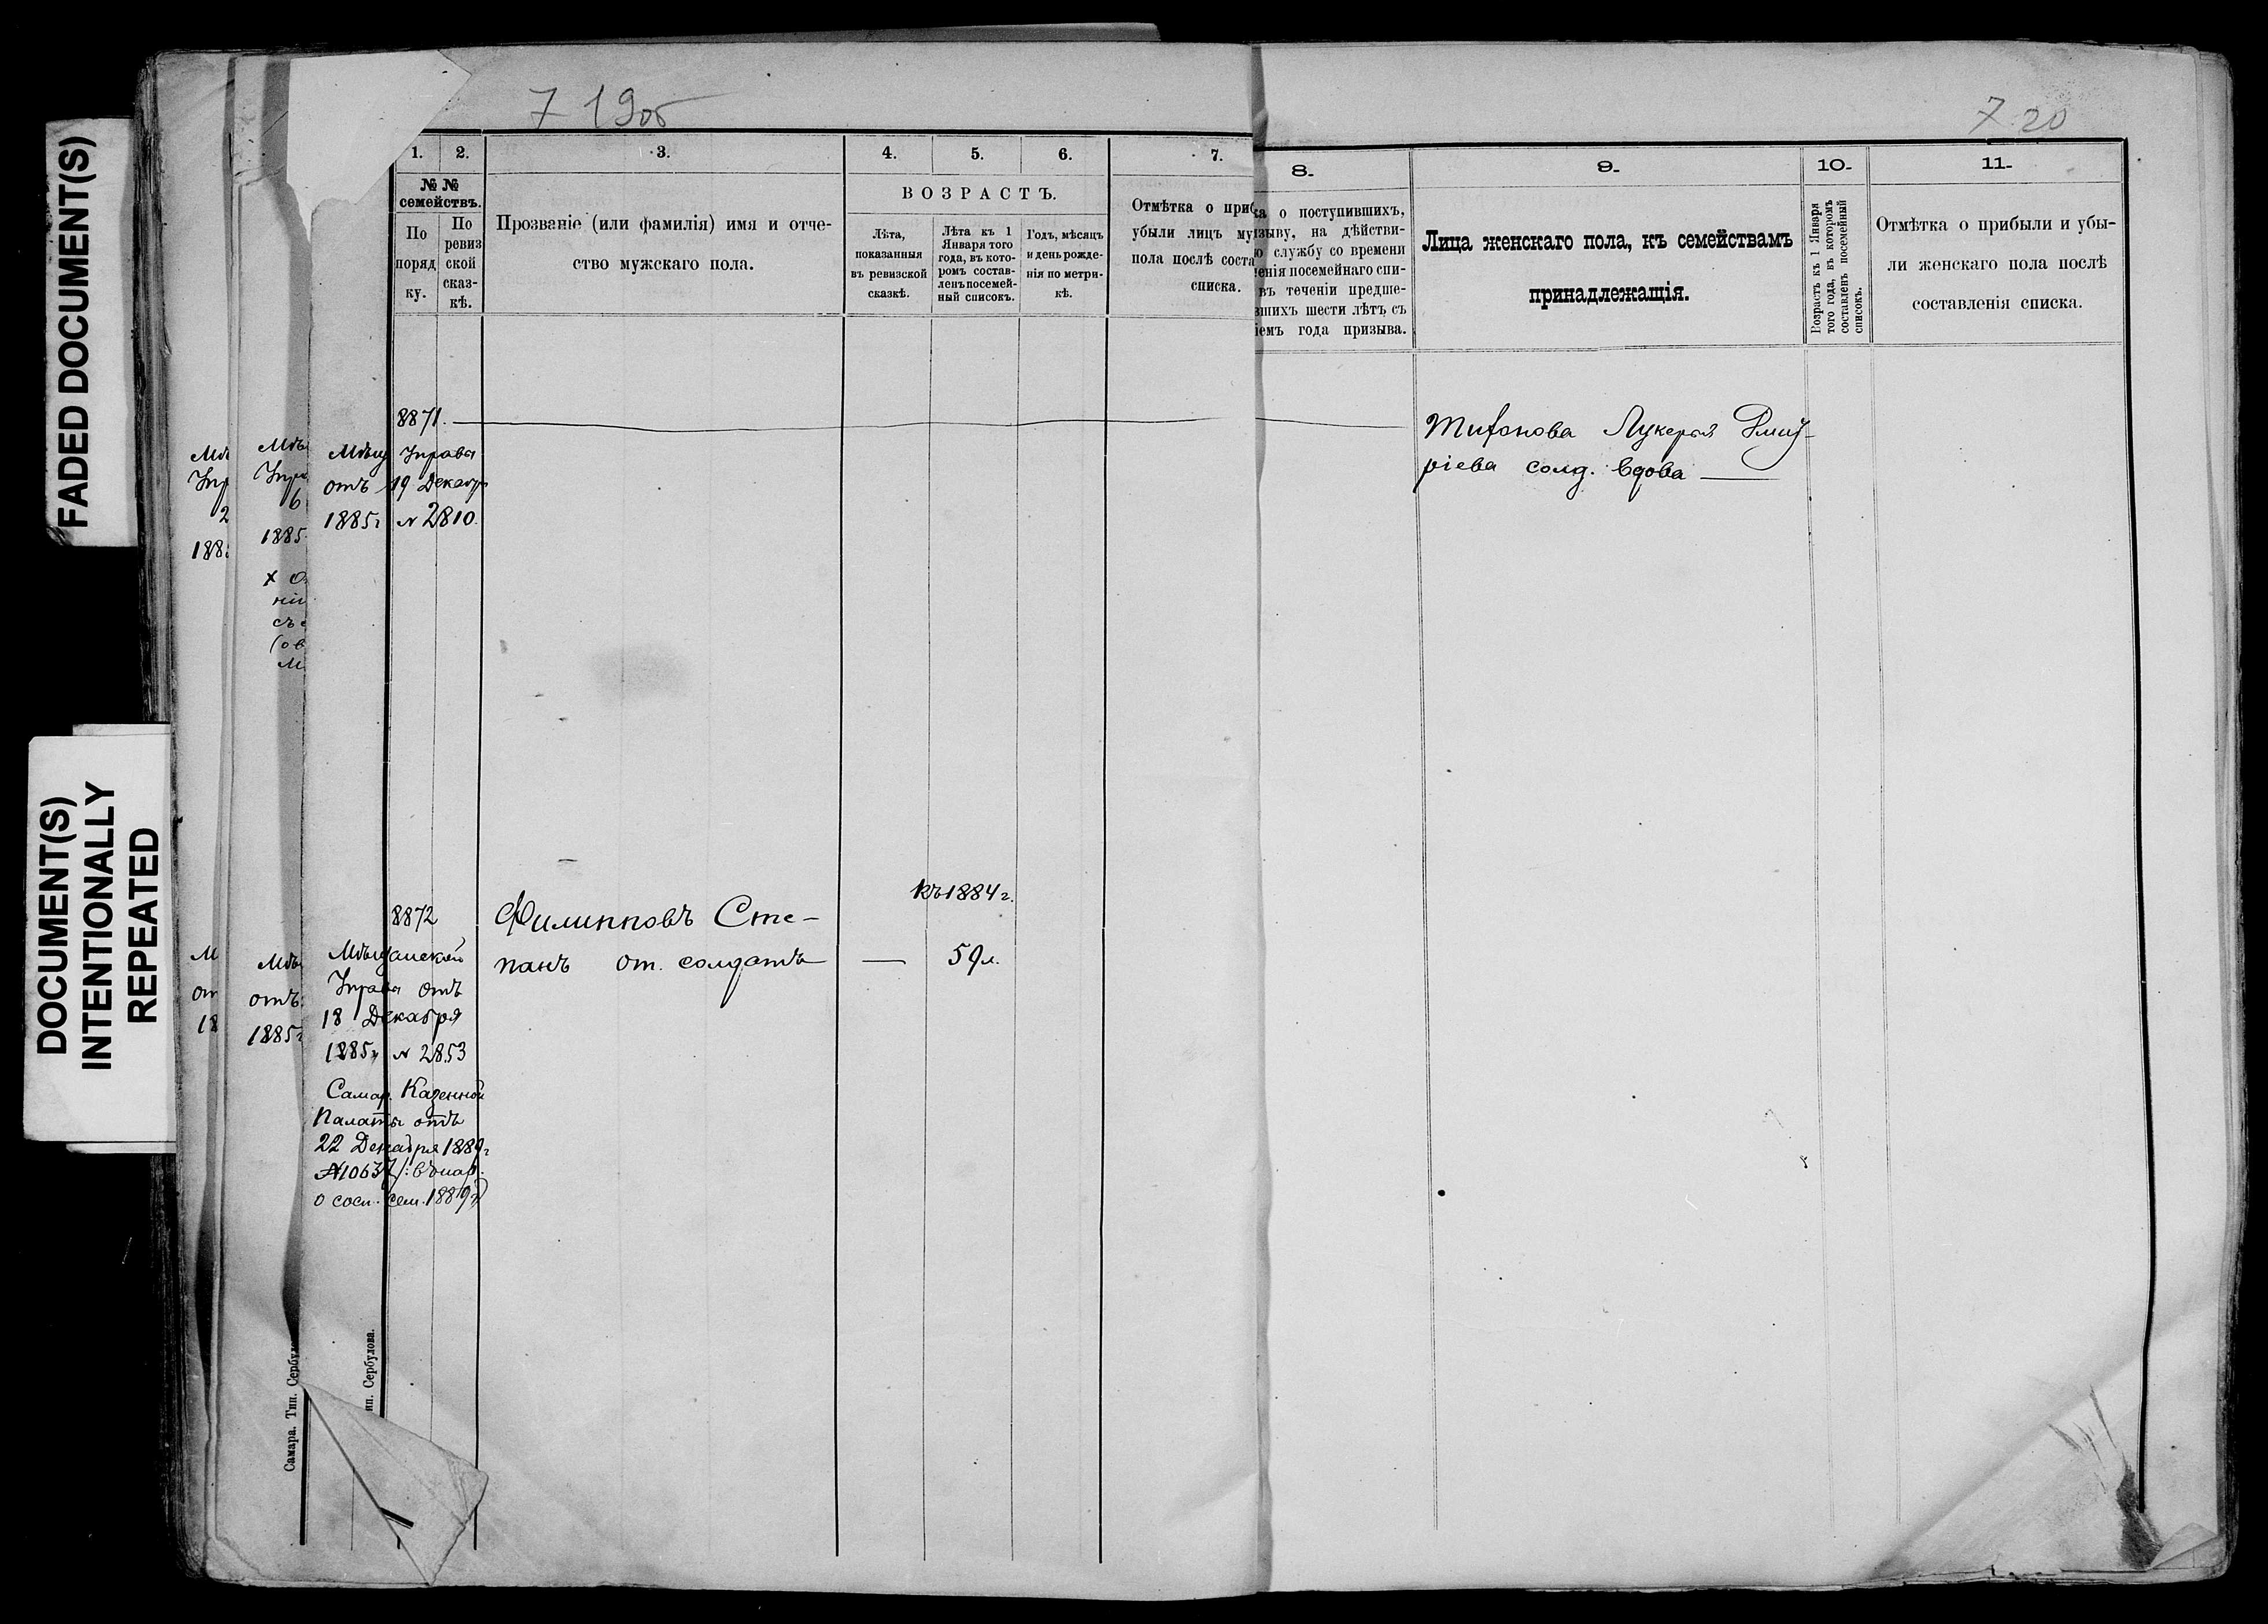 FADED DOCUMENT(S)
DOCUMENT(S)
INTENTIONALLY
REPEATED
7 19об
7 20
1. 2. 3. 4. 5. 6. 7.
№ № семействъ.
По порядку.
По ревизской сказкѣ.
Прозваніе (или фамилія) имя и отче-
ство мужскаго пола.
ВОЗРАСТЪ.
Лѣта,
показанныя
въ ревизской
сказкѣ.
Лѣта къ 1
Января того
года, въ кото-
ромъ состав-
ленъ посемей-
ный списокъ.
Годъ, мѣсяцъ
и день рожде-
нія по метри-
кѣ.
Отмѣтка о приб
убыли лицъ му
пола послѣ соста
списка.
8. 9. 10. 11.
ка о поступившихъ,
изыву, на дѣйстви-
ю службу со времени
енія посемейнаго спи-
въ теченіи предше-
вшихъ шести лѣтъ съ
іемъ года призыва.
Лица женскаго пола, къ семействамъ
принадлежащія.
Возрастъ къ 1 Января
того года, въ которомъ
составленъ посемейный
списокъ.
Отмѣтка о прибыли и убы-
ли женскаго пола послѣ
составленія списка.
8871.
Мѣщ Управа
отъ 19 Декабр
1885г № 2810.
Тифонова Лукерья Дмит-
ріева солд. вдова
8872
Филипповъ Сте-
панъ от. солдатъ
къ 1884 г.
59 л.
Мѣщанской
Управа отъ
18 Декабря
1885г № 2853
Самар. Казенной
Палаты отъ
22 Декабря 1889г
№10637
о сост. сем. 1889г
Мѣ
Упр
2
188
Мѣ
Упра
6
1885
М
от
18
Мѣ
отъ
1885г
Самара. Тип. Сербул
ип. Сербулова.